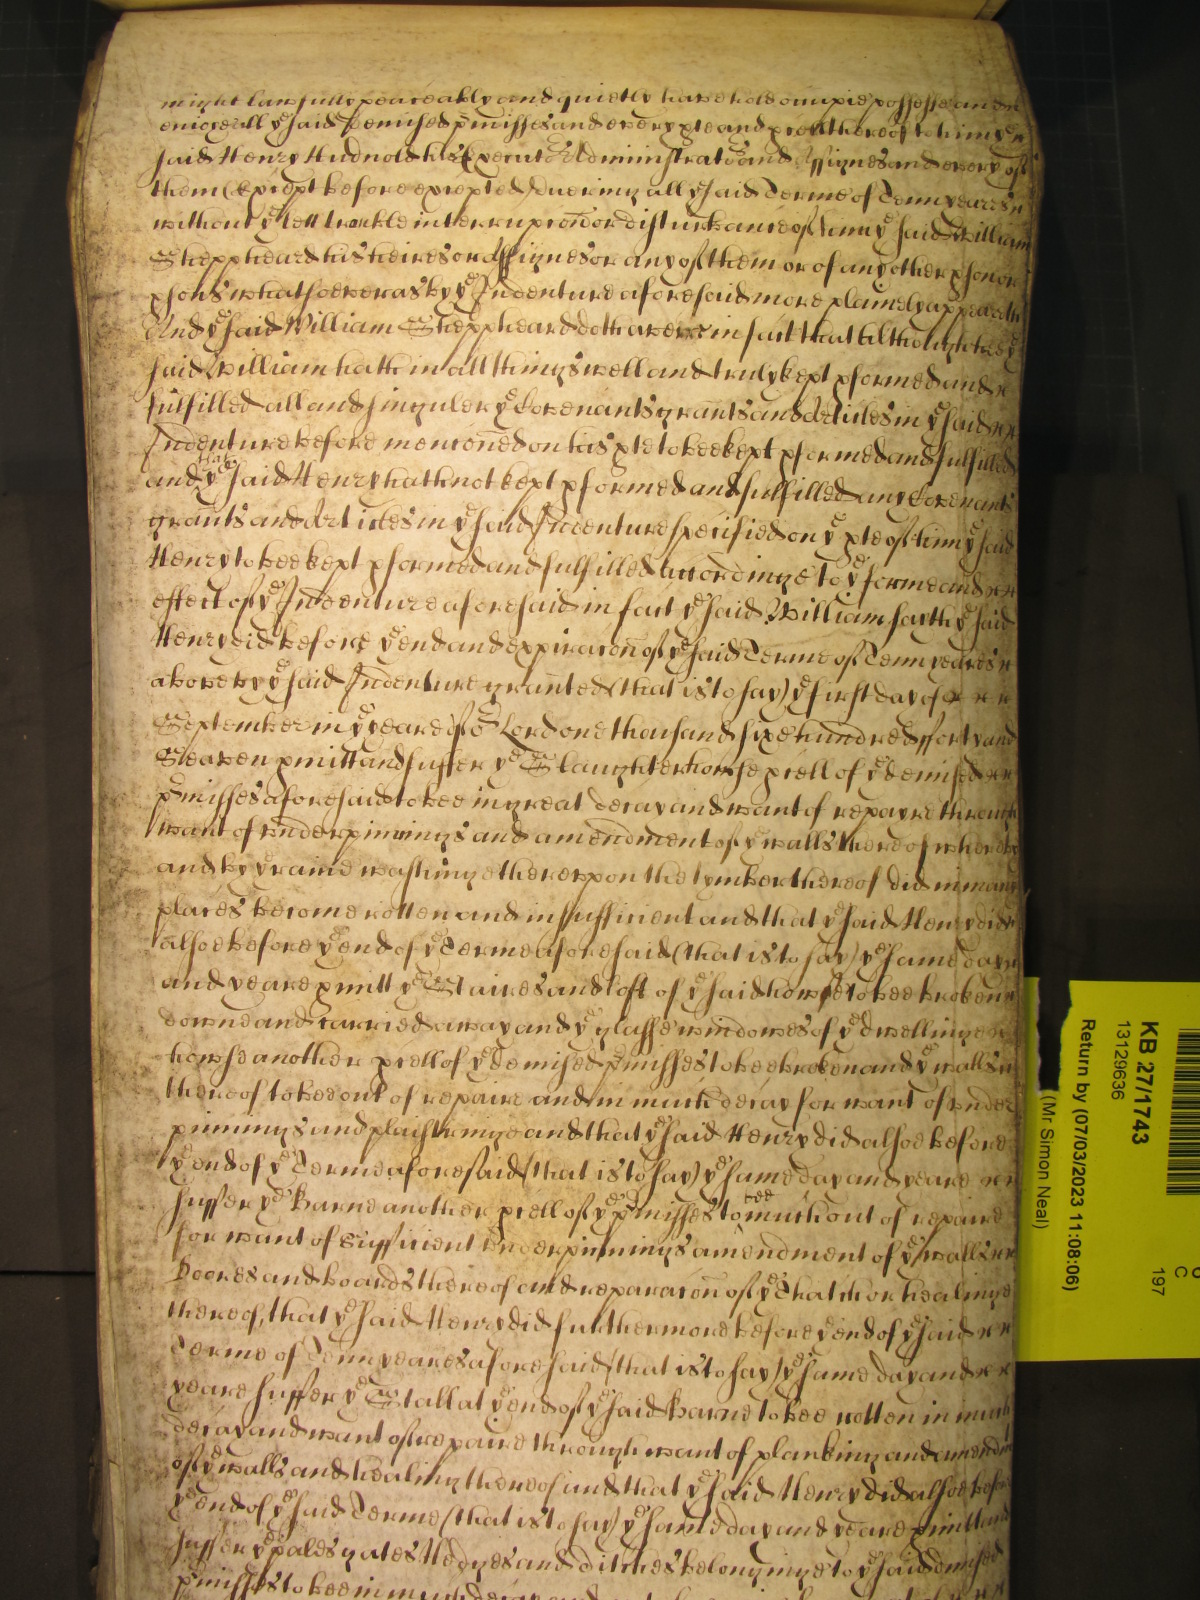 might lawfully peaceably and quietly have hold occupie possesse and
enioye all ye said demised pmisses and every pte and pcell thereof to him ye
said Henry Hudnold his Executors Administrators and Assignes and every of
them (except before excepted) dueringe all ye said Terme of Tenn yeares
without ye lett trouble interrupcon or disturbance of him ye said William
Sheppheard his heires or Assignes or any of them or of any other pson or
psons whatsoever as by ye Indenture aforesaid more plainely appeareth
And ye said William Sheppheard doth averr in fact that although hee ye
said William hath in all things well and truly kept pformed and
fulfilled all and singuler ye Covenants grants and Articles in ye said
Indenture before menconed on his pte to bee kept pformed and fulfilled
and that ye said Henry hath not kept pformed and fulfilled any Covenants
grants and Articles in ye said Indenture specified on ye pte of him ye said
Henry to bee kept pformed and fulfilled accordinge to ye forme and
effect of ye Indenture aforesaid in fact ye said William sayth ye said
Henry did before ye end and expiracon of ye said Terme of Tenn yeares
above by ye said Indenture granted (that is to say) ye first day of
September in ye yeare of or Lord one thousand sixe hundred fforty and
Seaven pmitt and suffer ye Slaughterhowse pcell of ye demised
pmisses aforesaid to bee in great decay and want of repayre through
want of underpinnings and amendment of ye walls thereof whereby
and by ye raine washinge thereupon the tymber thereof did in many
places become rotten and insufficient and that ye said Henry did
alsoe before ye end of ye Terme aforesaid (that is to say) ye same day
and yeare pmitt ye Staires and loft of ye said howse to bee broken
downe and carried away and ye glasse windowes of ye dwellinge
howse another pcell of ye demised pmisses to bee broken and ye walls
thereof to bee out of repaire and in much decay for want of under
pinnings and plaisteringe and that ye said Henry did alsoe before
ye end of ye Terme aforesaid (that is to say) ye same day and yeare
suffer ye Barne another pcell of ye pmisses to bee much out of repaire
for want of sufficient underpinnings amendment of ye walls
Doores and boards thereof and reparacon of ye Thatch or healinge
thereof, that ye said Henry did furthermore before ye end of ye said
Terme of Tenn yeares aforesaid (that is to say) ye same day and
yeare suffer ye Stall at ye end of ye said Barne to bee rotten in much
decay and want of repaire through want of planking and amendmt
of ye walls and healing thereof and that ye said Henry did alsoe before
ye end of ye said Terme (that is to say) ye same day and yeare pmitt and
suffer ye pales gates Hedges and ditches belonginge to ye said demised
pmisses to bee in much decay
KB 27/1743
13129636
Return by (07/03/2023 11:08:06)
(Mr Simon Neal)
C
197